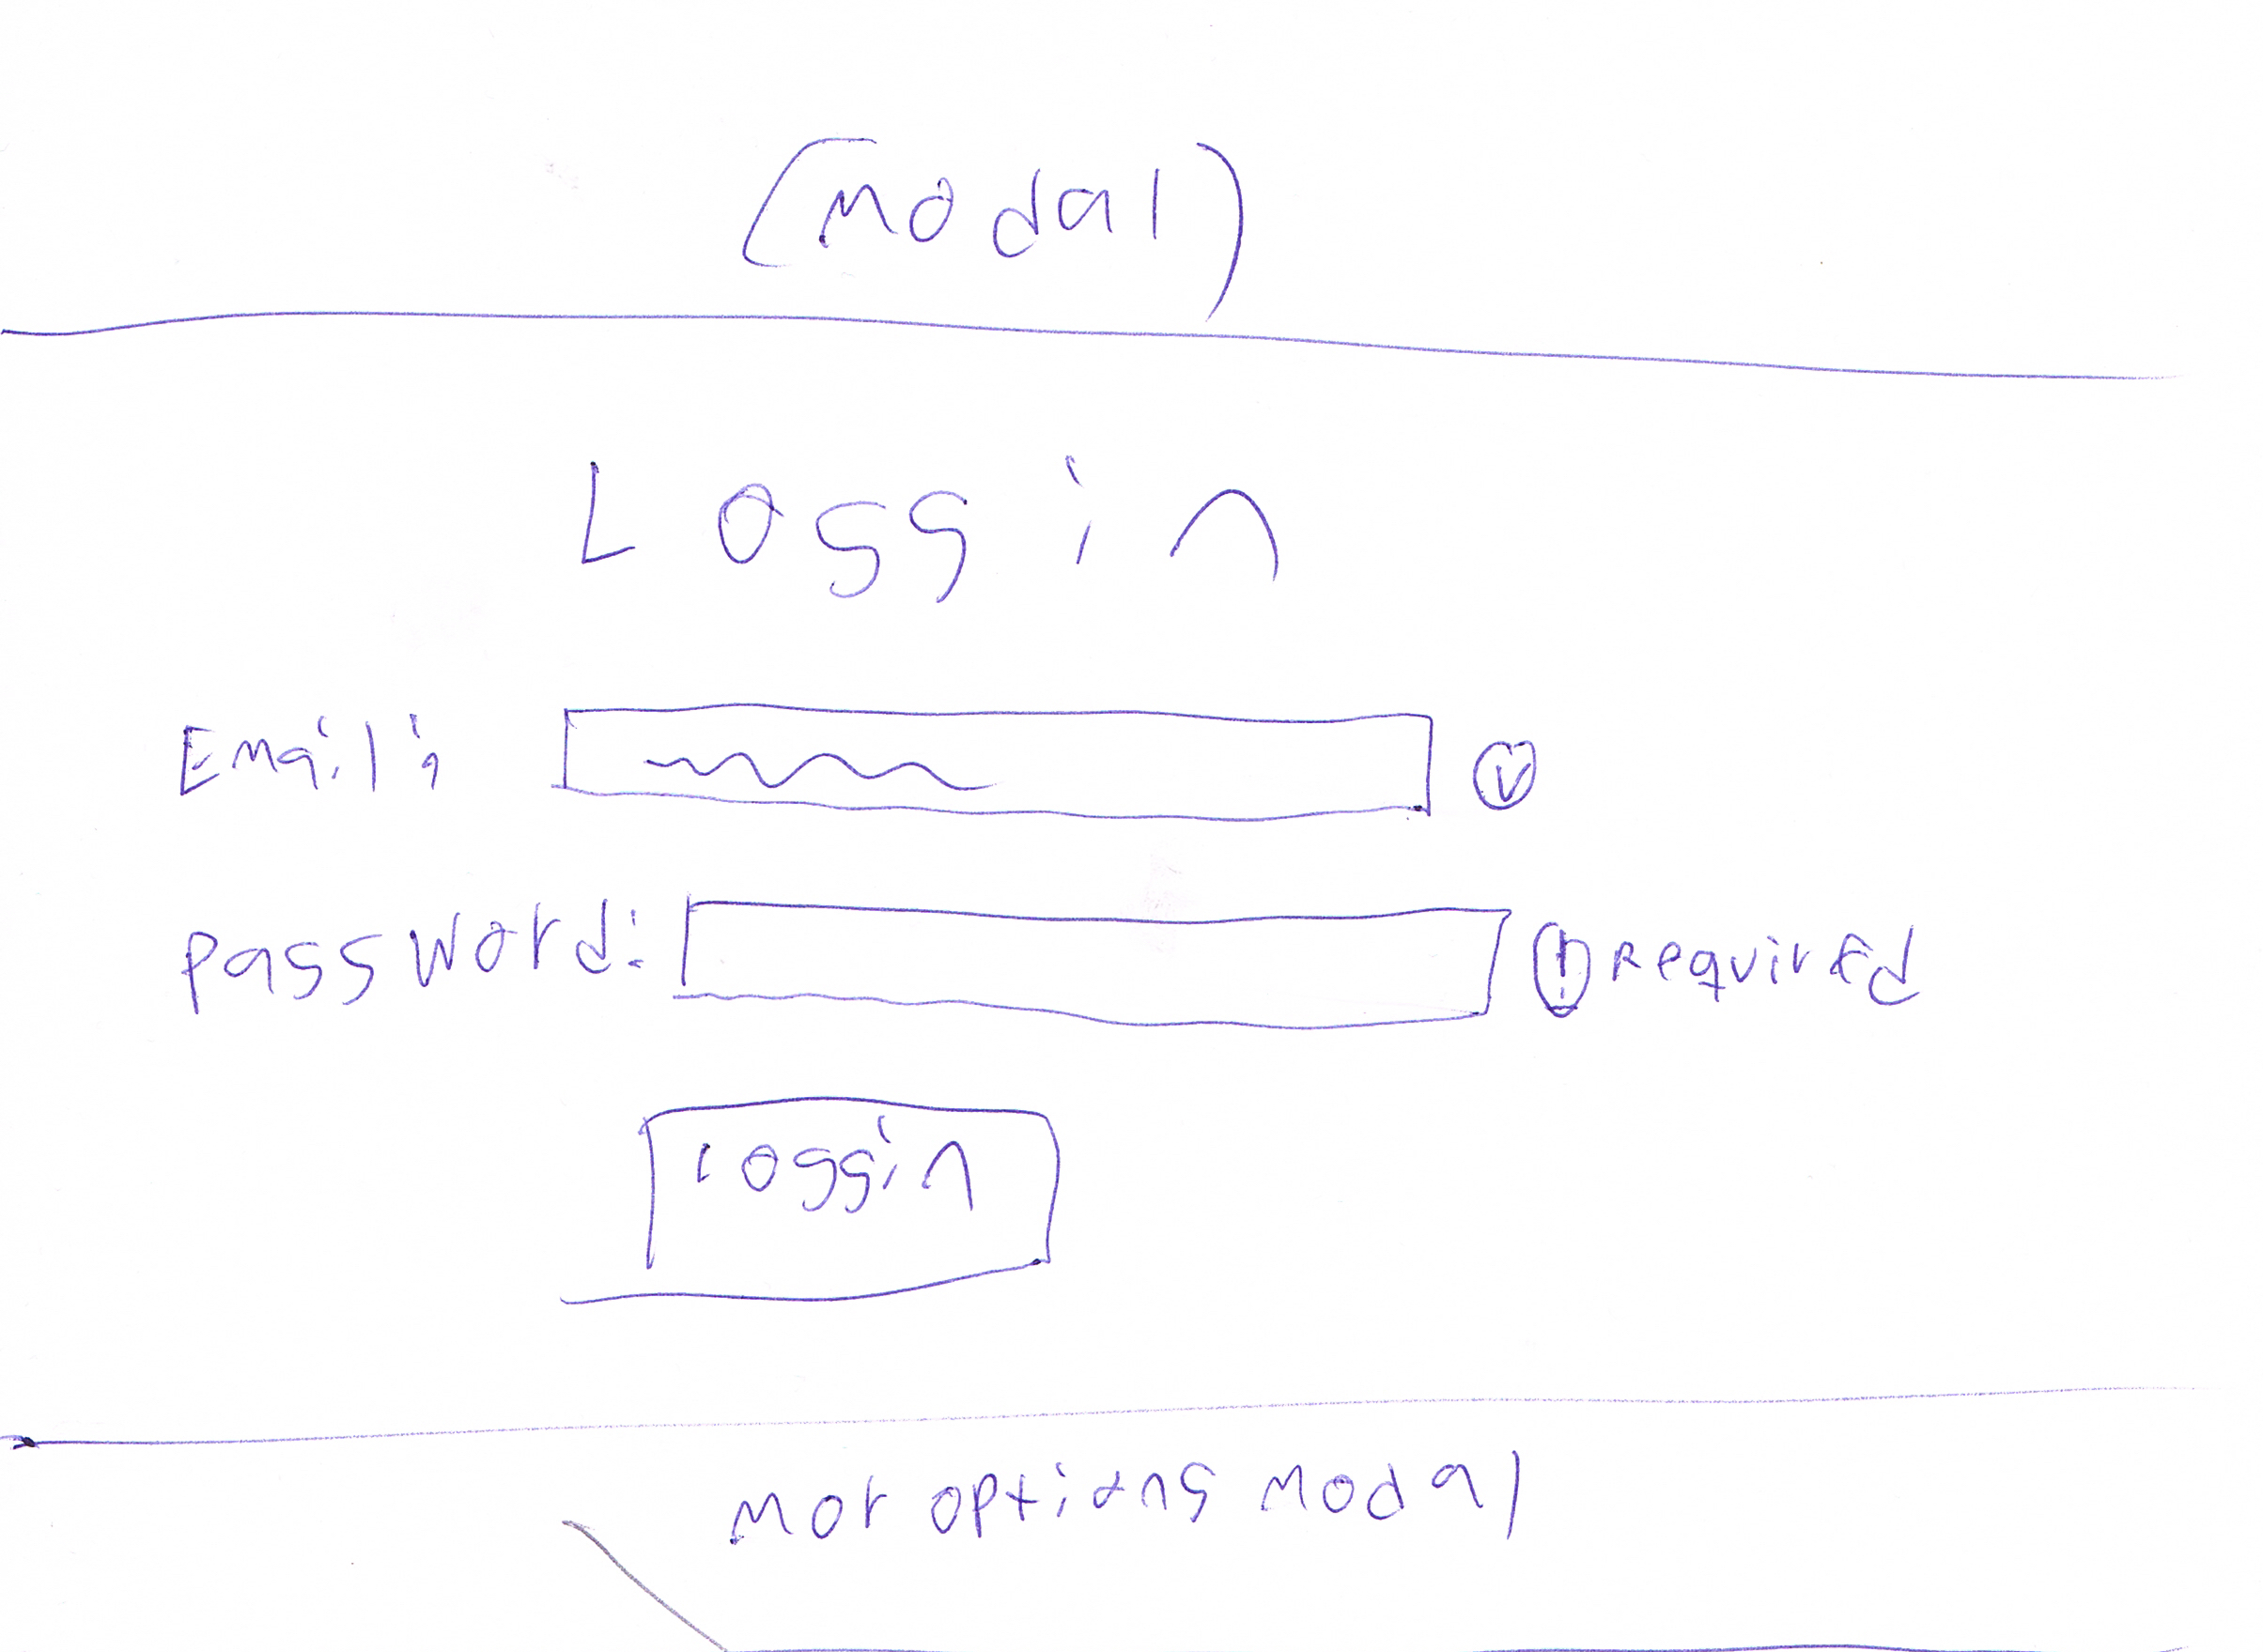 (modal)
Loggin
Email:
password:
! required
Loggin
mor options modal